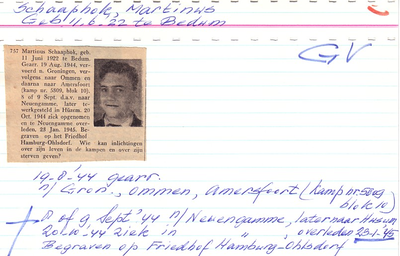 Schaaphok, Martinus
Geb 11.6.22 te Bedum
GV
757 Martinus Schaaphok, geb.
11 Juni 1922 te Bedum.
Gearr. 19 Aug. 1944, ver-
voerd n. Groningen, ver-
volgens naar Ommen en
daarna naar Amersfoort
(kamp nr. 5809, blok 10).
8 of 9 Sept. d.a.v. naar
Neuengamme, later te-
werkgesteld in Hüsem. 20
Oct. 1944 ziek opgenomen
en te Neuengamme over-
leden. 23 Jan. 1945. Be-
graven op het Friedhof
Hamburg-Ohlsdorf. Wie kan inlichtingen
over zijn leven in de kampen en over zijn
sterven geven?
19-8-'44 gearr.
n/ Gron., Ommen, Amersfoort (kamp nr 5809
blok 10)
8 of 9 Sept '44 n/ Neuengamme, later naar Husum
20-10-'44 ziek in " , overleden 23-1-'45
Begraven op Friedhof Hamburg-Ohlsdorf